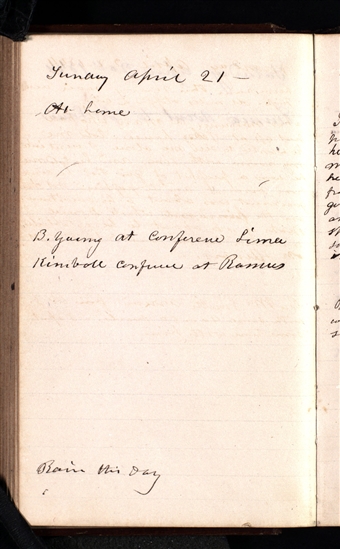 Sunday April 21 —
At home
B. Young at Conference Lima
Kimball confrence at Ramus
Rain this day